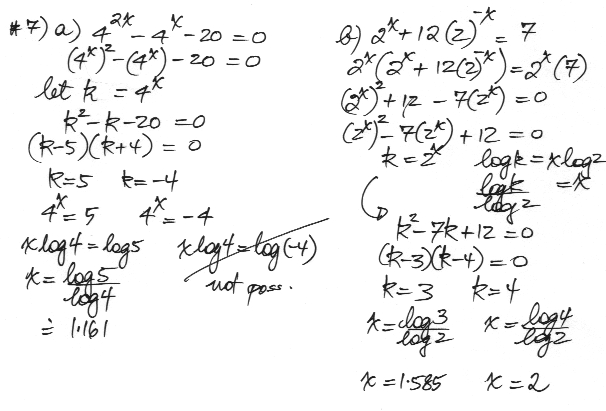 #7) a) 4^{2x} - 4^x - 20 = 0
(4^x)^2 - (4^x) - 20 = 0
let k = 4^x
k^2 - k - 20 = 0
(k-5)(k+4) = 0
k=5 k=-4
4^x = 5 4^x = -4
x log4 = log5 x log4 = log(-4)
x = log5/log4 not poss.
≐ 1.161
b) 2^x + 12(2)^{-x} = 7
2^x(2^x + 12(2)^{-x}) = 2^x(7)
(2^x)^2 + 12 - 7(2^x) = 0
(2^x)^2 - 7(2^x) + 12 = 0
k = 2^x log k = x log 2
log k/log 2 = x
k^2 - 7k + 12 = 0
(k-3)(k-4) = 0
k = 3 k = 4
x = log3/log2 x = log4/log2
x = 1.585 x = 2